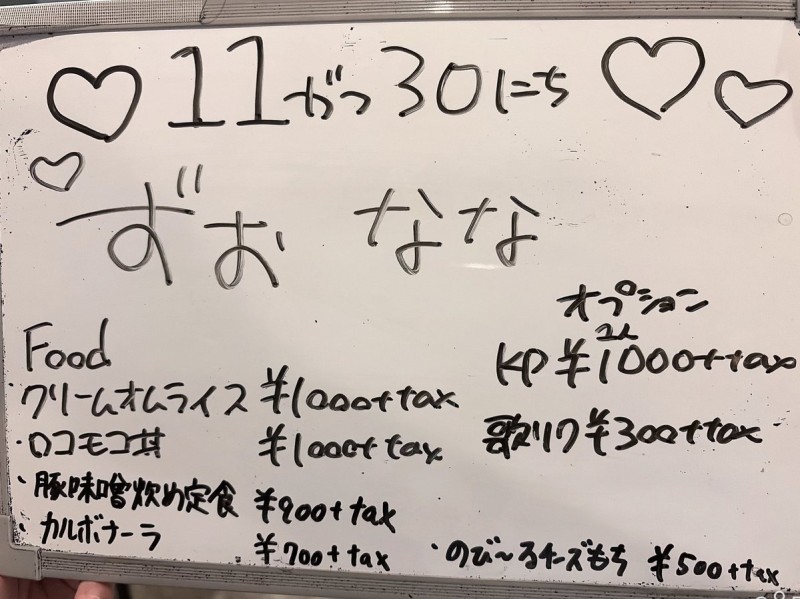 ♡ 11がつ30にち ♡♡
♡ ずお なな
オプション
Food
KP ¥1000+tax
・クリームオムライス ¥1000+tax
・ロコモコ丼 ¥1000+tax
歌リク ¥300+tax
・豚味噌炒め定食 ¥900+tax
・カルボナーラ ¥700+tax
・のび〜るチーズもち ¥500+tax